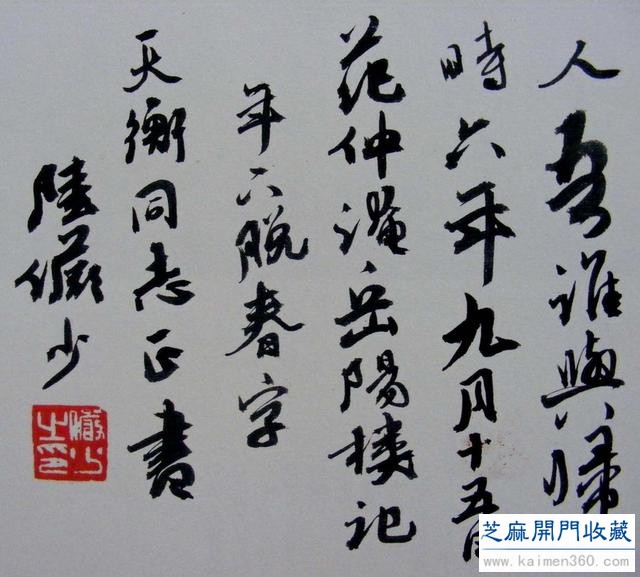 人吾誰與歸
時六年九月十五日
范仲淹岳陽樓記
年下脫春字
天衡同志正書
陸儼少
儼少之印
芝麻開門收藏
www.kaimen360.com